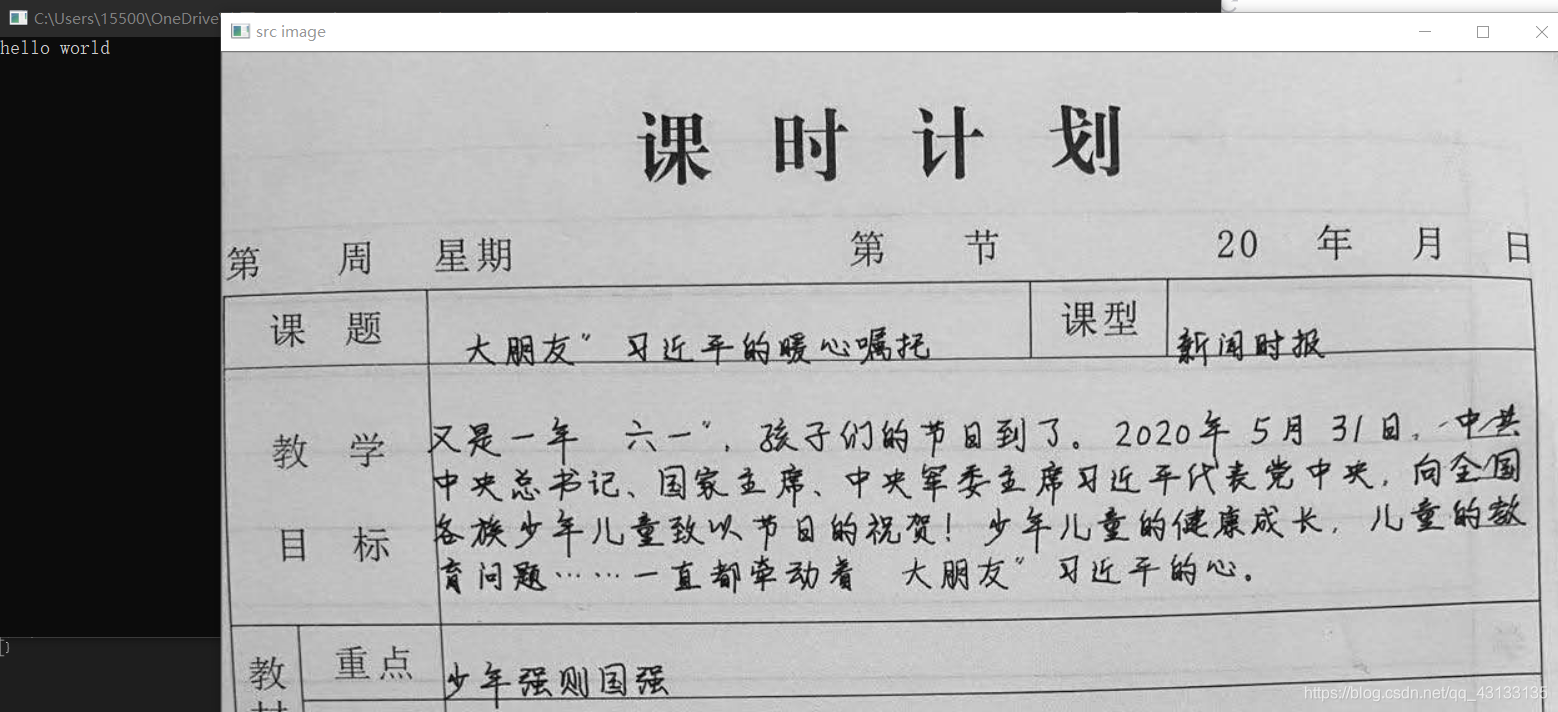 C:\Users\15500\OneDrive
src image
hello world
课 时 计 划
第 周 星期 第 节 20 年 月 日
课 题 大朋友”习近平的暖心嘱托 课型 新闻时报
教 学 又是一年 六一”，孩子们的节日到了。2020年5月31日，中共
中央总书记、国家主席、中央军委主席习近平代表党中央，向全国
目 标 各族少年儿童致以节日的祝贺！少年儿童的健康成长，儿童的教
育问题……一直都牵动着 大朋友”习近平的心。
教 重点 少年强则国强
https://blog.csdn.net/qq_43133135